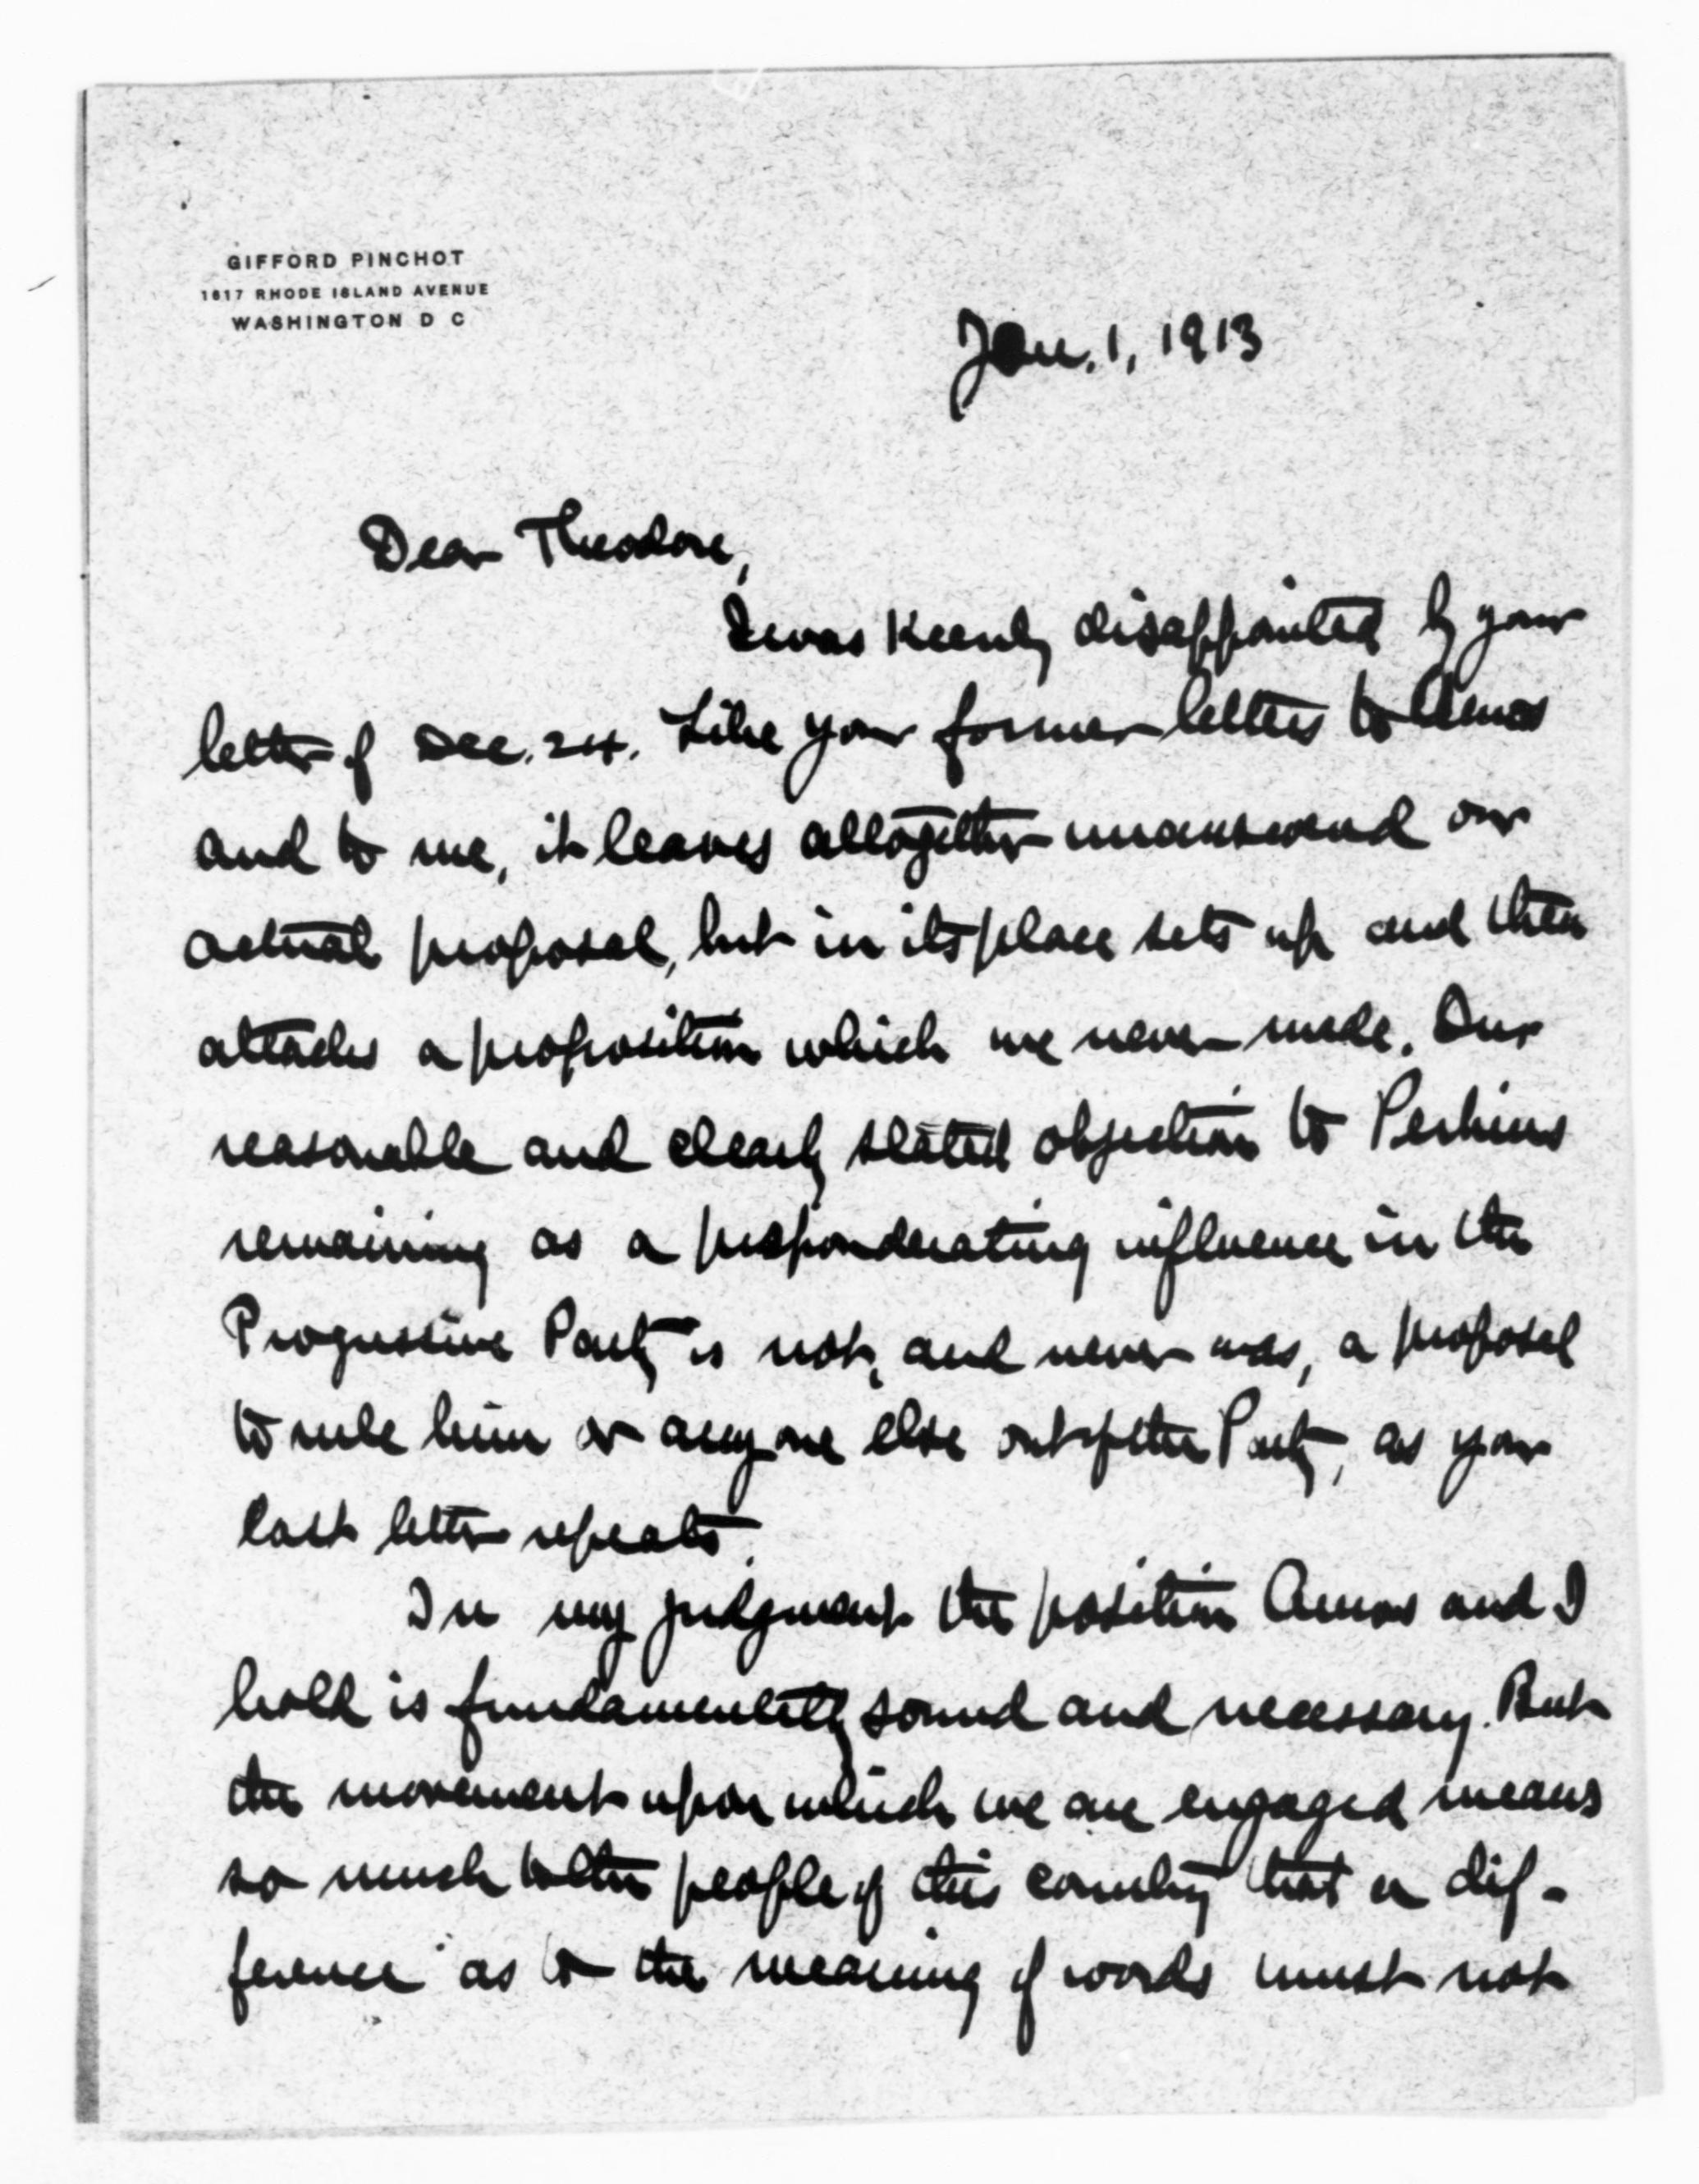 GIFFORD PINCHOT
1617 RHODE ISLAND AVENUE
WASHINGTON D C
Jan. 1, 1913
Dear Theodore,
I was keenly disappointed by your
letter of Dec. 24. Like your former letters to Amos
and to me, it leaves altogether unanswered our
actual proposal, but in its place sets up and then
attacks a proposition which we never made. Our
reasonable and clearly stated objection to Perkins
remaining as a preponderating influence in the
Progressive Party is not, and never was, a proposal
to rule him or anyone else out of the Party, as your
last letter repeats.
In my judgment the position Amos and I
hold is fundamentally sound and necessary. But
the movement upon which we are engaged means
so much to the people of this country that a dif-
ference as to the meaning of words must not